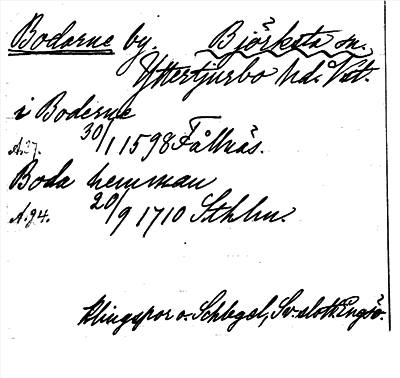 Bodarne by Björksta sn.
Yttertjurbo hd. Vstl.
i Boderne
A.37. 30/1 1598 Fållnäs.
Boda hemman
A.94. 20/9 1710 Sthlm.
Klingspor o. Schlegel, Sv. slott. Engsö.